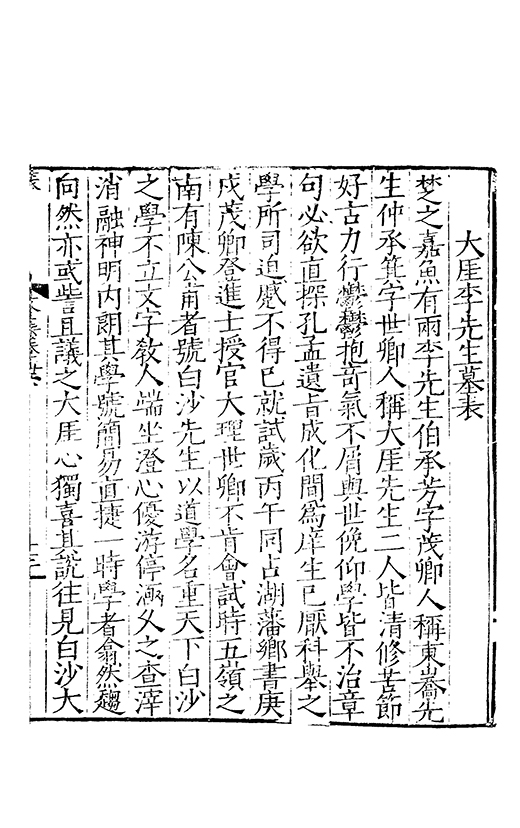 大厓李先生墓表
楚之嘉魚有兩李先生伯承芳字茂卿人稱東嶠先
生仲承箕字世卿人稱大厓先生二人皆清修苦節
好古力行鬱鬱抱竒氣不屑與世俛仰學皆不治章
句必欲直探孔孟遺旨成化間爲庠生已厭科舉之
學所司迫蹙不得已就試歲丙午同占湖藩鄉書庚
戌茂卿登進士授官大理世卿不肯會試時五嶺之
南有陳公甫者號白沙先生以道學名重天下白沙
之學不立文字敎人端坐澄心優游停涵久之查滓
消融神明内朗其學號簡易直捷一時學者翕然趨
向然亦或訾且議之大厓心獨喜且說往見白沙大